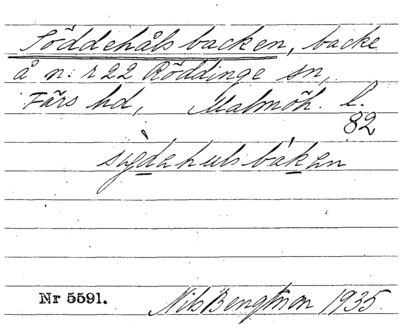 Söddehålsbacken, backe
å n: r 22 Röddinge sn,
Färs hd, Malmöh. l.
82
sødehulsbakęn
Nr 5591.
Nils Bengtson 1935.